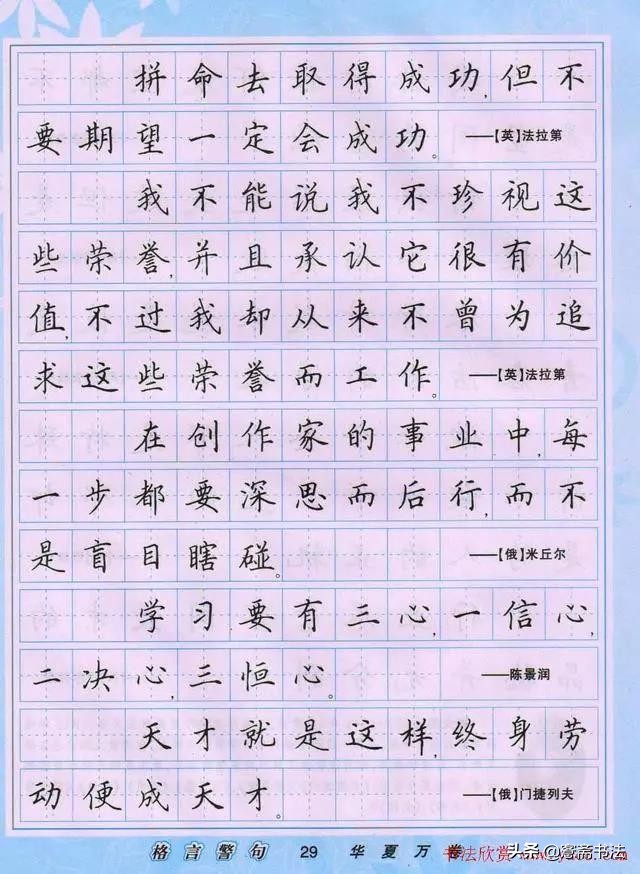 拼命去取得成功,但不
要期望一定会成功。 ——【英】法拉第
我不能说我不珍视这
些荣誉,并且承认它很有价
值,不过我却从来不曾为追
求这些荣誉而工作。 ——【英】法拉第
在创作家的事业中,每
一步都要深思而后行,而不
是盲目瞎碰。 ——【俄】米丘尔
学习要有三心,一信心,
二决心,三恒心。 ——陈景润
天才就是这样,终身劳
动便成天才。 ——【俄】门捷列夫
格言警句 29 华夏万卷
书法欣赏
头条@窵斋书法